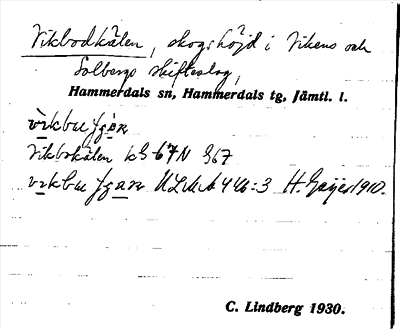 Vikbodkälen, skogshöjd i Vikens och
Solbergs skifteslag,
Hammerdals sn, Hammerdals tg, Jämtl. l.
Vikbokälen kG 67 N 367
ULMA 446:3 H. Geijer 1910.
C. Lindberg 1930.